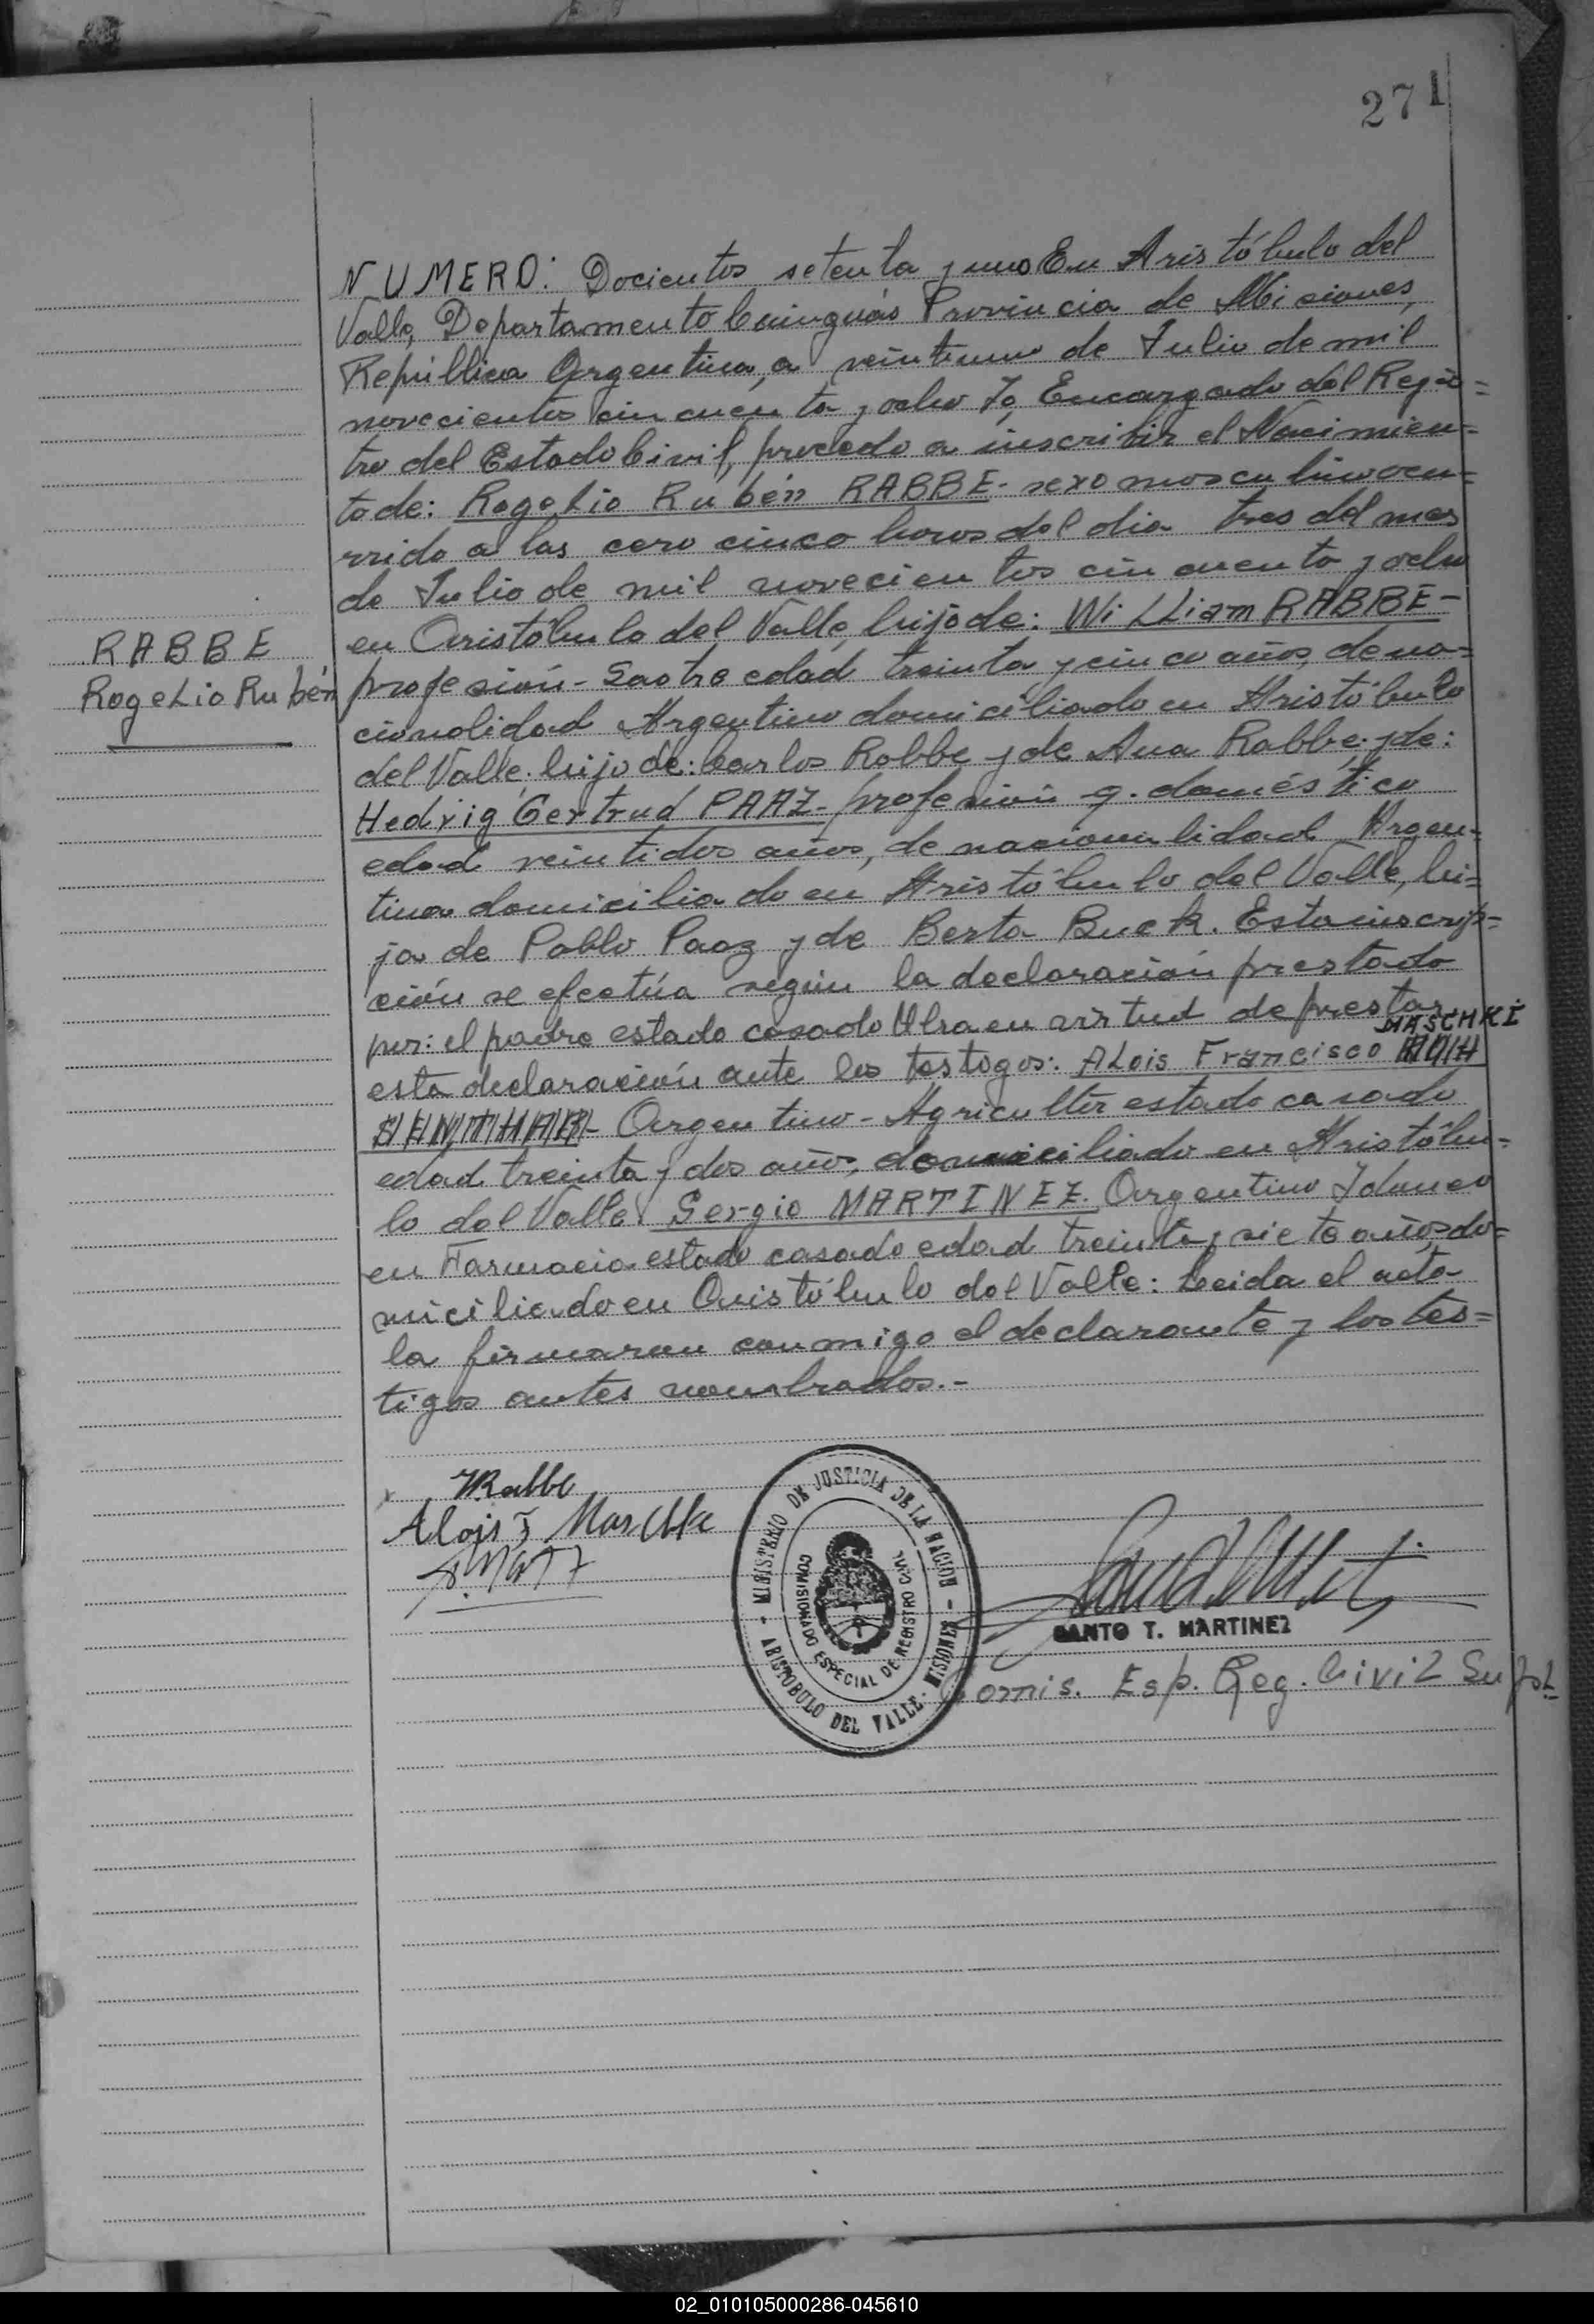 271
NUMERO: Docientos setenta y uno En Aristóbulo del
Valle, Departamento Cainguás Provincia de Misiones,
República Argentina, a veintiuno de Julio de mil
novecientos cincuenta y ocho Yo, Encargado del Regis=
tro del Estado Civil, procedo a inscribir el Nacimien=
to de: Rogelio Rubén RABBE- sexo masculino ocu=
rrido a las cero cinco horas del dia tres del mes
de Julio de mil novecientos cincuenta y ocho
en Aristóbulo del Valle, hijo de: WiLLiam RABBE-
RABBE
Rogelio Rubén
profesión- Sastre edad treinta y cinco años, de na=
cionalidad Argentino domiciliado en Aristóbulo
del Valle, hijo de: Carlos Rabbe y de Ana Rabbe; y de:
Hedvig Gertrud PAAZ- profesión q. doméstico
edad veintidos años, de nacionalidad Argen=
tina domiciliado en Aristóbulo del Valle, hi=
ja de Pablo Paaz y de Berta Buek. Esta inscrip=
ción se efectúa según la declaración prestado
por: el padre estado casado en virtud de prestar
MASCHKE
esta declaración ante los testogos: ALois Francisco
Argentino- Agricultor estado casado
edad treinta y dos años, domiciliado en Aristóbu=
lo del Valle Sergio MARTINEZ. Argentino Idoneo
en Farmacia estado casado edad treinta y siete años, do=
miciliado en Aristóbulo del Valle: Leida el acta
la firmaron conmigo el declarante y los tes=
tigos antes nombrados.-
WRabbe
Alois F. Maschke
MINISTERIO DE JUSTICIA DE LA NACION
COMISIONADO ESPECIAL DE REGISTRO CIVIL
ARISTOBULO DEL VALLE - MISIONES
SANTO T. MARTINEZ
Comis. Esp. Reg. CiviL SupL
02_010105000286-045610